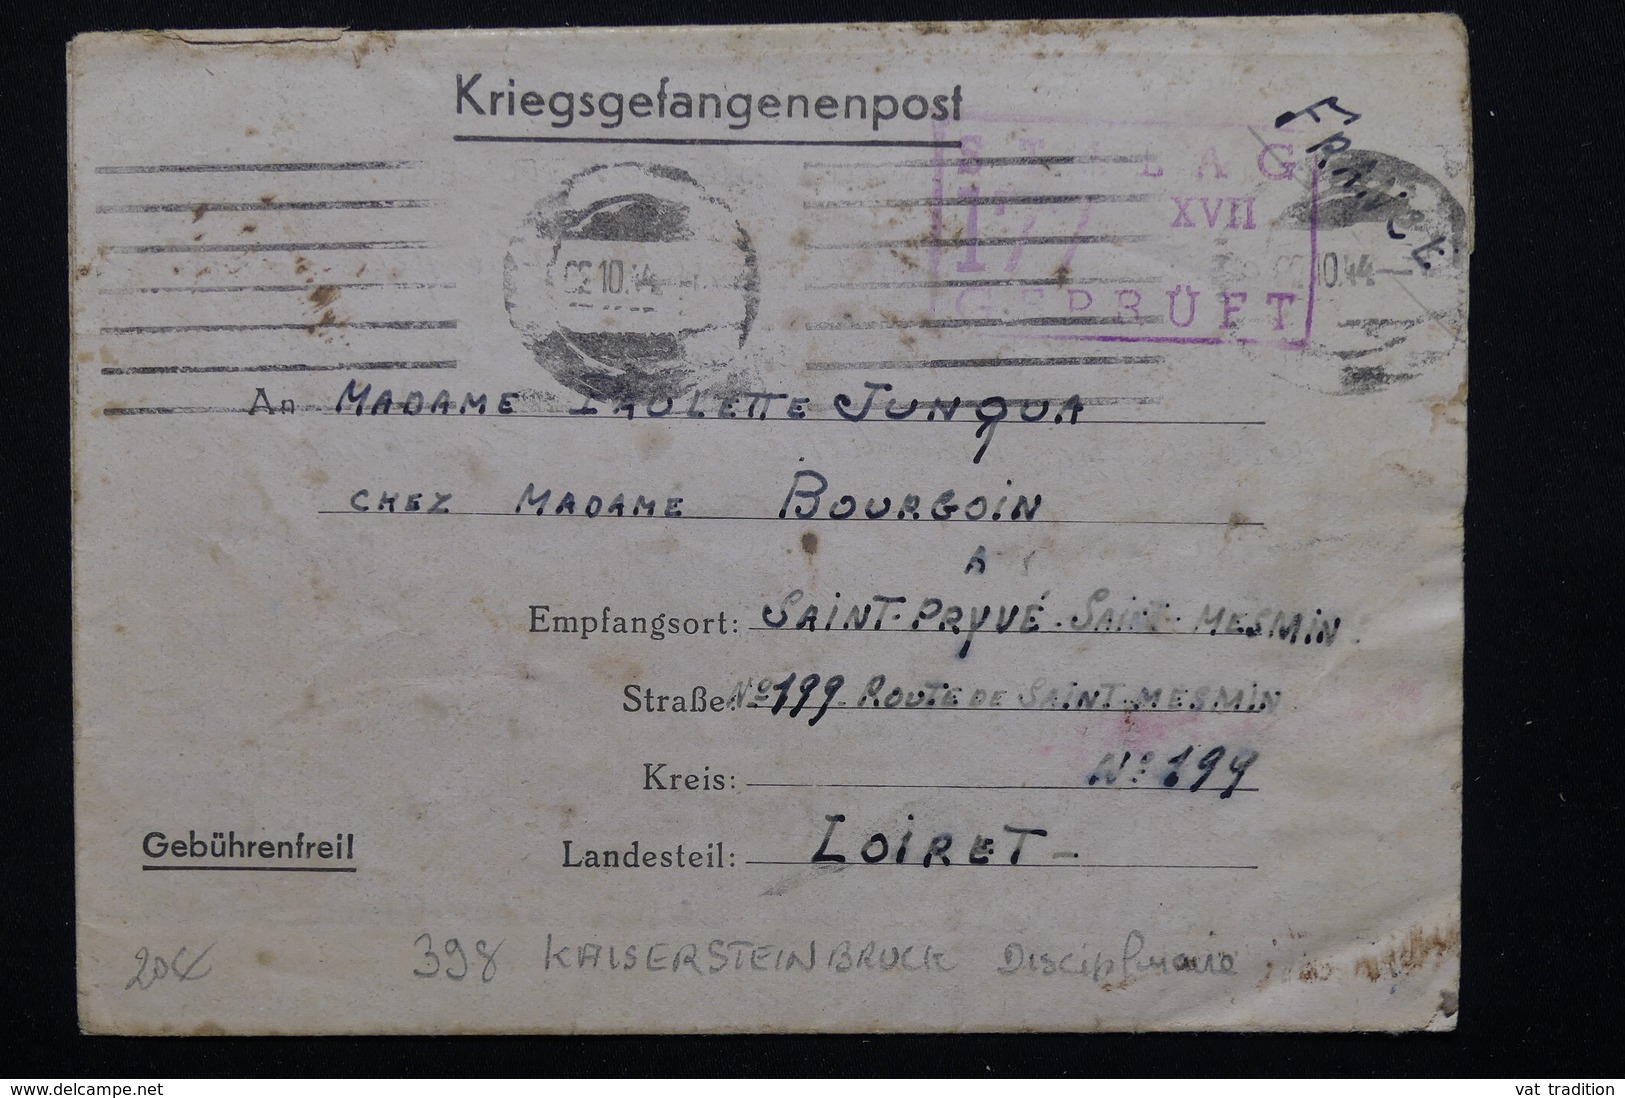 Kriegsgefangenenpost
FRANCE
STALAG
177 XVII
GEPRÜFT
10.44
10.44
An MADAME PAULETTE JUNQUA
CHEZ MADAME BOURGOIN
A
Empfangsort: SAINT-PRYVÉ-SAINT-MESMIN
Straße: N° 199 ROUTE DE SAINT-MESMIN
Kreis: N° 199
Gebührenfrei!
Landesteil: LOIRET-
20€
398 KAISERSTEINBRUCK Disciplinaire
www.delcampe.net
vat tradition